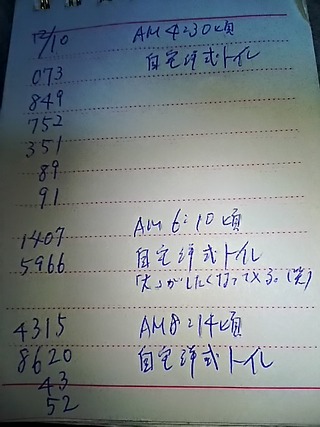 12/10 AM 4:30頃
073 自宅洋式トイレ
849
752
351
89
91
1407 AM 6:10頃
5966 自宅洋式トイレ
「大」がしたくなってくる。(笑)
4315 AM8:14頃
8620 自宅洋式トイレ
43
52